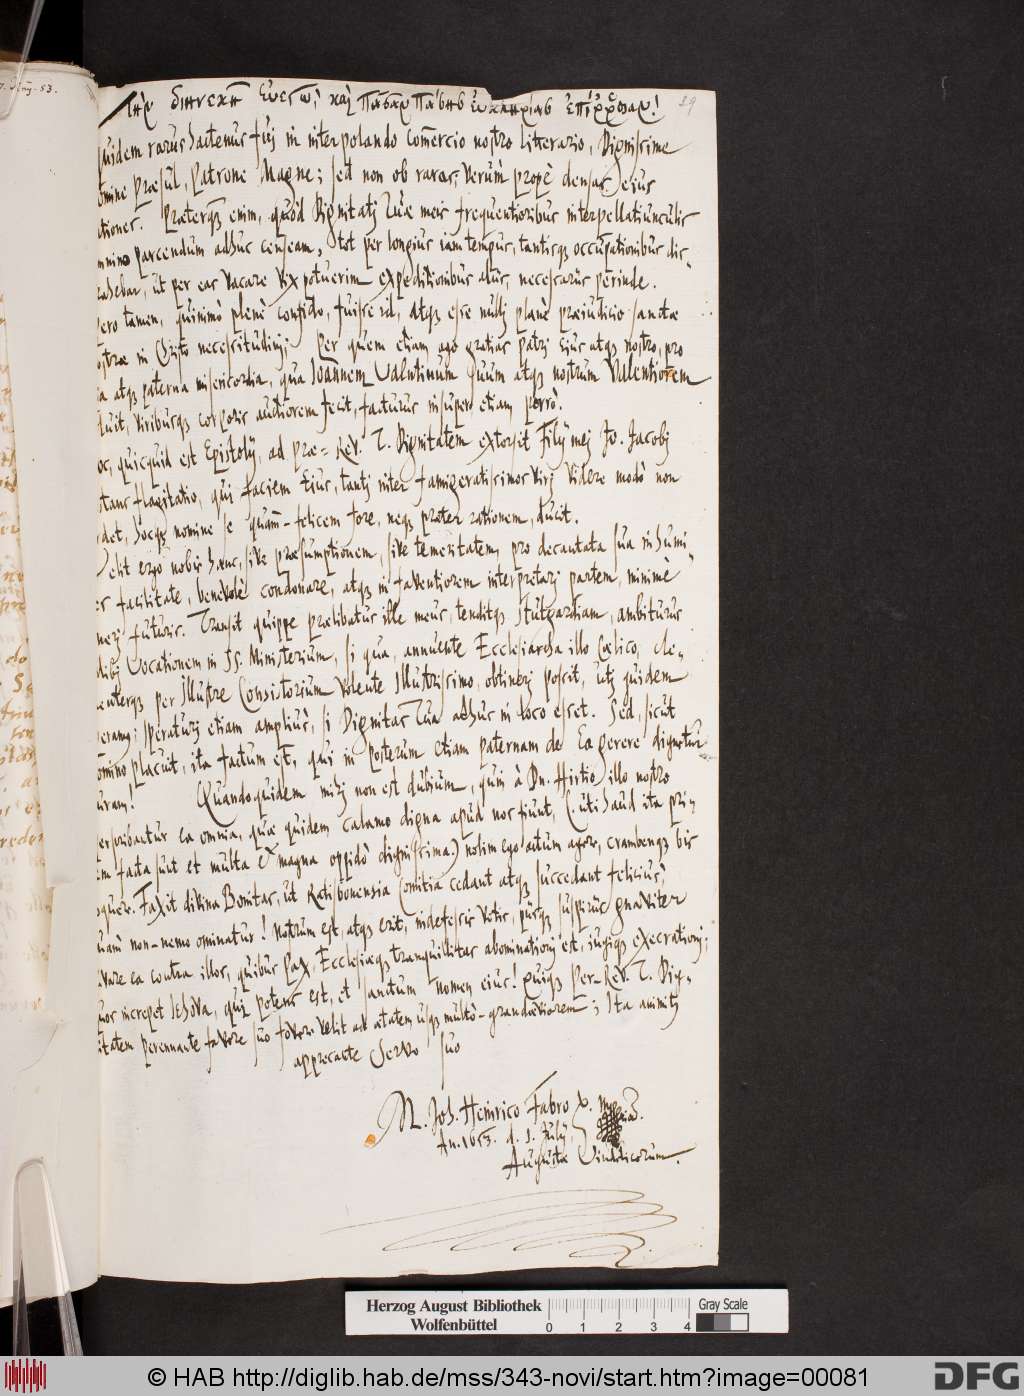 7. Aug. 53.
29
Τὴν διηνεκῆ καὶ
quidem rarus hactenus fui in interpolando Commercio nostro litterario, Dignissime
omine Præsul, Patrone Magne; sed non ob raras; Verùm propè densas ejus
ationes. Præterqȝ enim, quòd Dignitatj Tuæ meis frequentioribus interpellatiunculis
mnino parcendum adhuc censeam, tot per longius iam tempus, tantisqȝ occupationibus dis-
ahebar, ut per eas vacare vix potuerim expeditionibus aliis, necessariis perinde.
pero tamen, quinimò plenè confido, fuisse id, atqȝ esse nullj planè præiudicio sanctæ
ostræ in Christo necessitudinj; Per quem etiam ago gratias patrj Ejus atqȝ nostro, pro
ia atqȝ paterna misericordia, qua Ioannem Valentinum suum atqȝ nostrum Valentiorem
duit, viribusqȝ corporis auctiorem fecit, facturus insuper etiam porrò.
oc, quicquid est Epistolij, ad præ= Rev. T. Dignitatem extorsit Filij mej Jo. Jacobj
flagitatio, qui faciem Ejus, tantj inter famigeratissimos Virj videre modò non
det, hocqȝ nomine se quàm-felicem fore, neqȝ præter rationem, ducit.
Velit ergo nobis hanc, sive præsumptionem, sive temeritatem, pro decantata sua in humi-
es facilitate, benevolè condonare, atqȝ in faventiorem interpretarj partem, minimè
futuris. Transit quippe prælibatus ille meus, tenditqȝ Stutgardiam, ambiturus
Vocationem in SS. Ministerium, si qua, annuente Ecclesiarcha illo Cœlico, cle-
enterqȝ per Illustre Consistorium volente Illustrissimo, obtinerj possit, utj quidem
eramȝ; speraturj etiam ampliùs, si Dignitas Tua adhuc in loco esset. Sed, sicut
omino placuit, ita factum est, qui in posterum etiam paternam de Eo gerere dignetur
uram! Quandoquidem mihj non est dubium, quin à Dn. Hirtio illo nostro
erscribantur ea omnia, quæ quidem calamo digna apud nos fiunt, (uti haud ita pri-
em facta sunt et multa et magna oppidò dignissima.) nolim ego actum agere, crambenqȝ bis
oquere. Faxit divina Bonitas, ut Ratisbonensia Comitia cedant atqȝ succedant feliciùs,
uàm non-nemo ominatur! Nostrum est, atqȝ erit, indefessis votis, piisqȝ suspiriis gnaviter
ea contra illos, quibus Pax, Ecclesiæqȝ tranquillitas abominationj est, iugiqȝ execrationj;
uos increpet Iehova, quj potens est, et sanctum nomen eius! Quiqȝ Per-Rev. T. Dig-
itatem perennante favore suo fovere velit ad ætatem usqȝ multò-grandæviorem; Ita animitùs
apprecante Servo suo
M. Joh. Heinrico Fabro
An. 1653. d. 1. Julij,
Augustæ Vindelicorum.
Herzog August Bibliothek
Wolfenbüttel
0 1 2 3 4
Gray Scale
© HAB http://diglib.hab.de/mss/343-novi/start.htm?image=00081
DFG